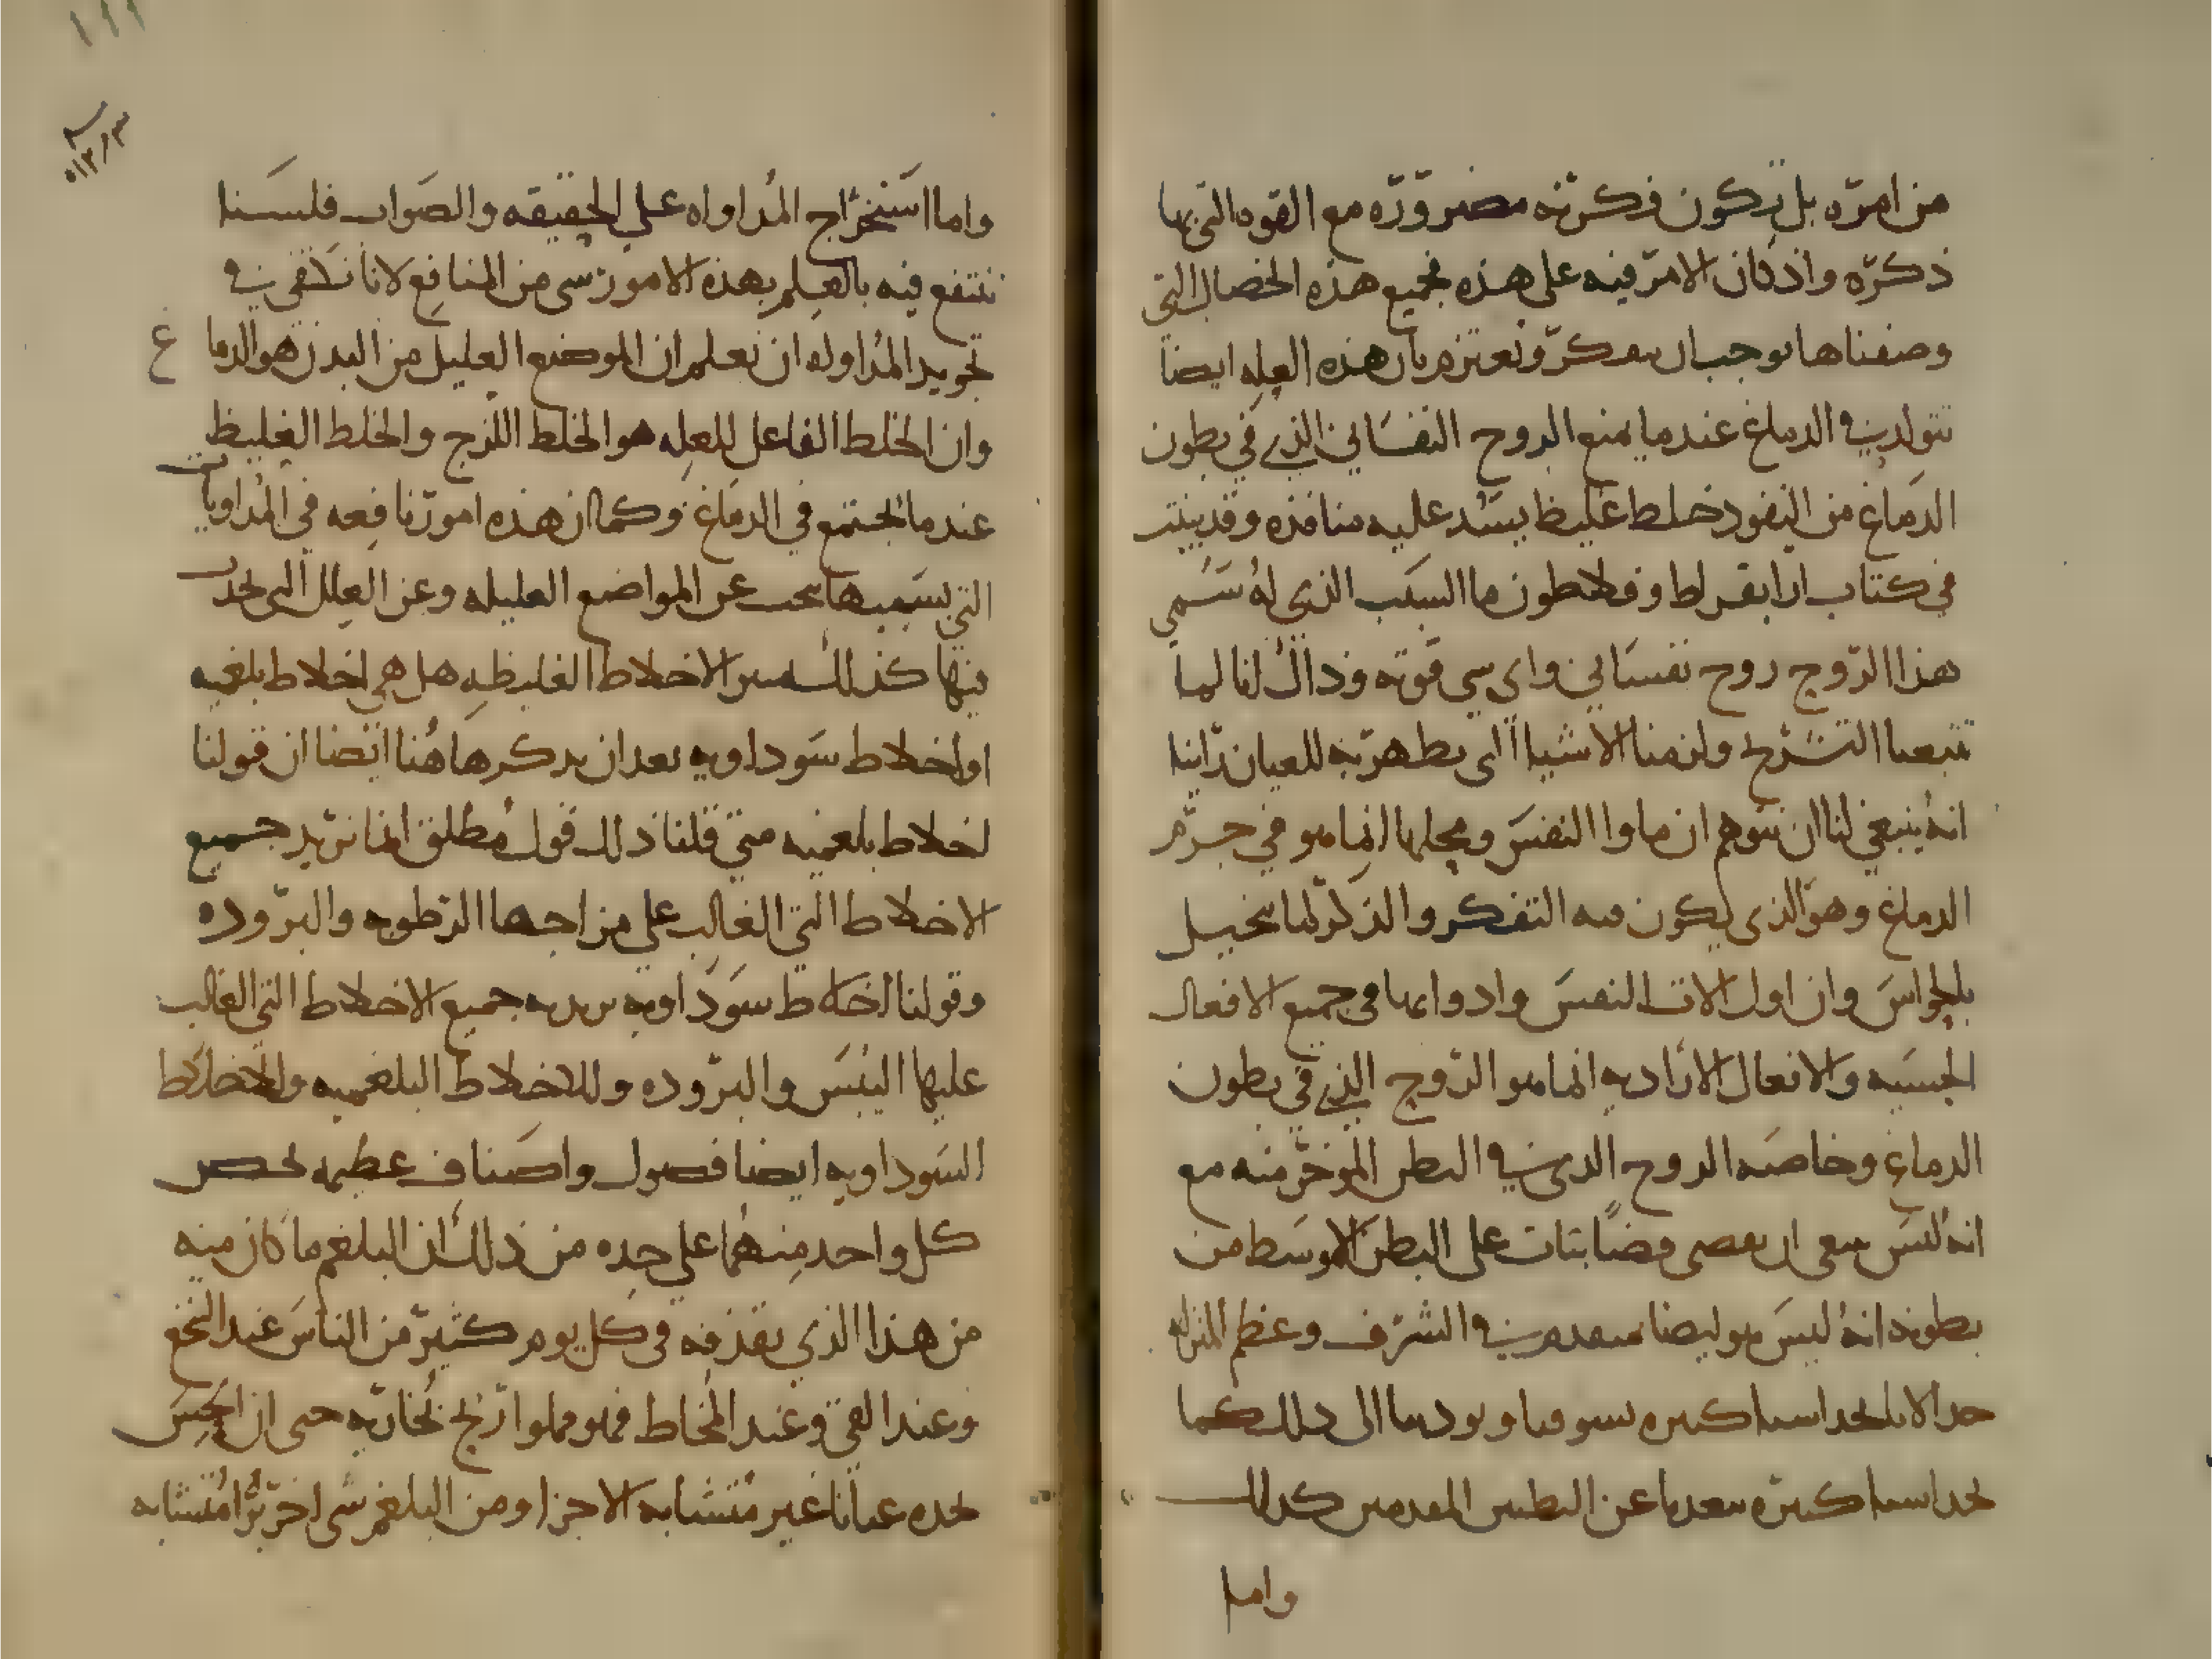 من امره بل تكون فكرته مضرورة مع القوه التي بها
ذكره واذ كان الامر فيه على هذه فجميع هذه الخصال التي
وصفناها توجب ان نفكر ونعتزم بان هذه العله ايضا
تتولد في الدماغ عندما يمنع الروح النفساني الذي في بطون
الدماغ من النفوذ خلط غليظ يسد عليه منافذه وقد بينت
في كتاب ارا بقراط وفلاطون ما السبب الذي له سمي
هذا الروح روح نفساني واي سي قوته وذاك انا لما
تتبعنا التشريح ولزمنا الاشيا التي تظهر به للعيان راينا
انه ينبغي لنا ان نتوهم ان ماوا النفس ومحلها انما هو في جرم
الدماغ وهو الذي يكون فيه التفكر والذكر لما تخيل
بالحواس وان اول الات النفس وادواتها في جميع الافعال
الحسيه والافعال الاراديه انما هو الروح الذي في بطون
الدماغ وخاصه الروح الذي في البطن الموخر منه مع
انه ليس ينبغي ان نقضي قضا بتات على البطن الاوسط من
بطونه انه ليس هو ايضا متقدم في الشرف وعظم المنزله
جدا لانا نجد اسبابا كثيره تسوقنا وتودينا الى ذلك كما
نجد اسبابا كثيره تبعدنا عن البطنين المقدمين كذلك
واما
١١١
واما استخراج المداواه على الحقيقه والصواب فلسنا
ننتفع فيه بالعلم بهذه الامور سي من المنافع لانا نكتفي في
تجويد المداواه ان نعلم ان الموضع العليل من البدن هو الدماغ
وان الخلط الفاعل للعله هو الخلط اللزج والخلط الغليظ
عندما يجتمع في الدماغ وكما ان هذه امور نافعه في المداويات
التي بسببها نبحث عن المواضع العليله وعن العلل التي تحدث
فيها كذلك نميز الاخلاط الغليظه هل هي اخلاط بلغميه
او اخلاط سوداويه بعد ان نذكر هاهنا ايضا ان قولنا
اخلاط بلغميه متى قلنا ذلك قول مطلق انما نريد جميع
الاخلاط التي الغالب على مزاجها الرطوبه والبروده
وقولنا اخلاط سوداويه نريد به جميع الاخلاط التي الغالب
عليها اليبس والبروده وللاخلاط البلغميه وللاخلاط
السوداويه ايضا فصول واصناف عظيمه تخص
كل واحد منهما على حده من ذلك ان البلغم ما كان منه
من هذا الذي يقذفه في كل يوم كثير من الناس عند التنخع
وعند القي وعند المخاط فهو مملوا ريح بخاريه حتى ان الحس
تجده عيانا غير متشابه الاجزا ومن البلغم شي اخر نرا متشابه